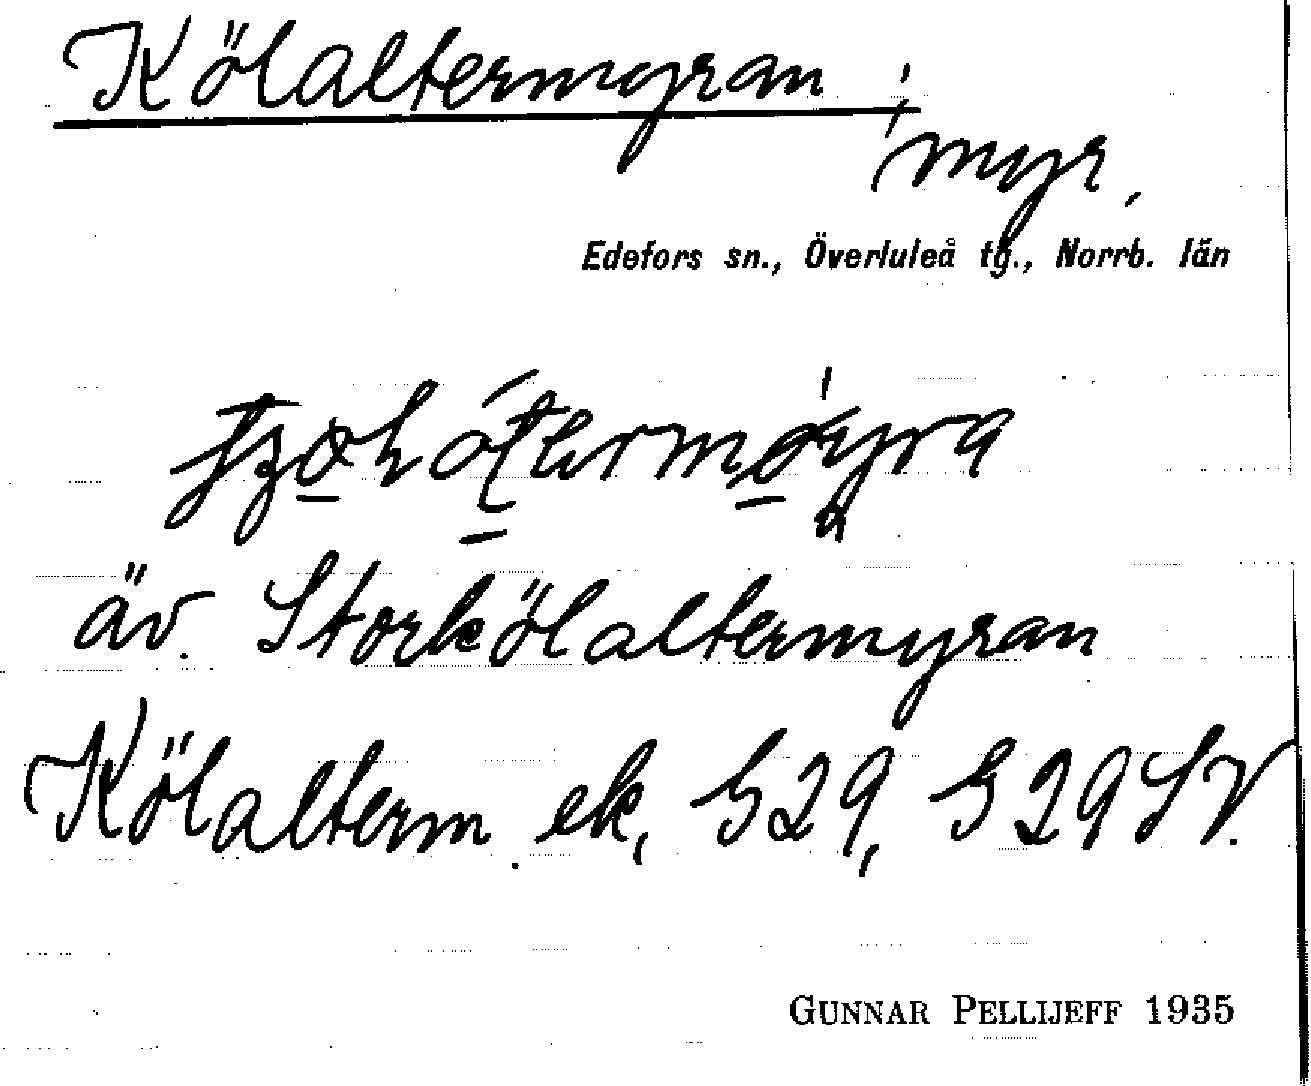 Kölaltermyran,
myr,
Edefors sn., Överluleå tg., Norrb. län
äv. Storkölaltermyran
Kölalterm. ek, G29, G29SV.
GUNNAR PELLIJEFF 1935